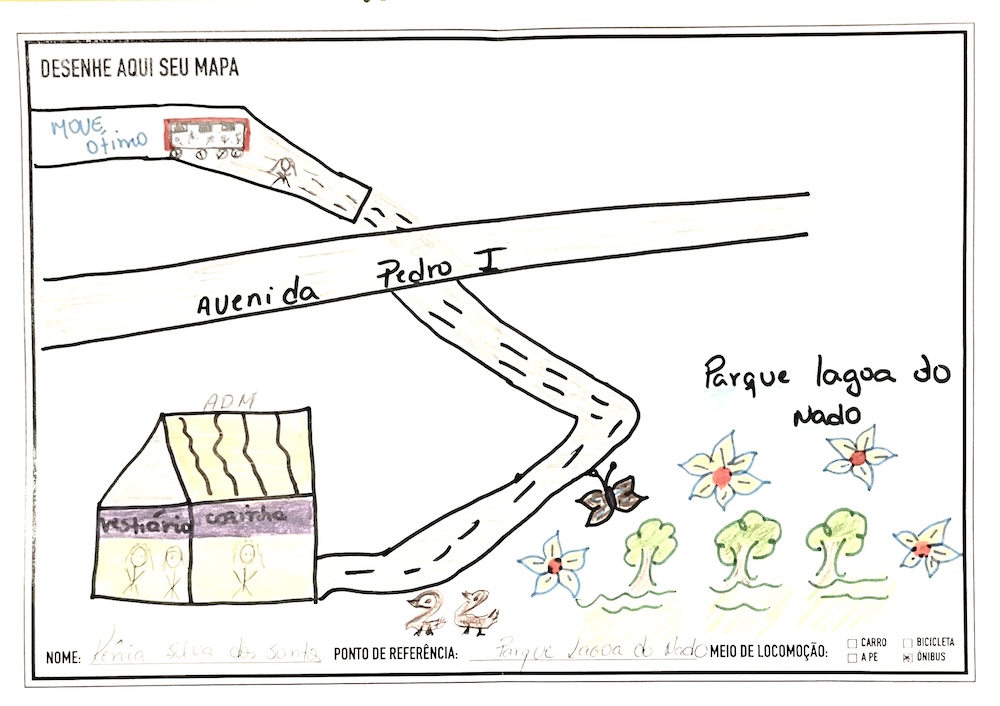 DESENHE AQUI SEU MAPA
MOVE
ótimo
Avenida Pedro I
Parque lagoa do
Nado
ADM
vestiário cozinha
NOME: Kênia Silva dos Santos PONTO DE REFERÊNCIA: Parque Lagoa do Nado MEIO DE LOCOMOÇÃO: CARRO BICICLETA
A PÉ ÔNIBUS